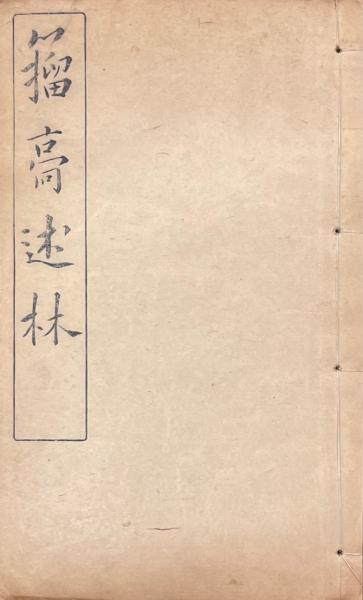 籀高述林